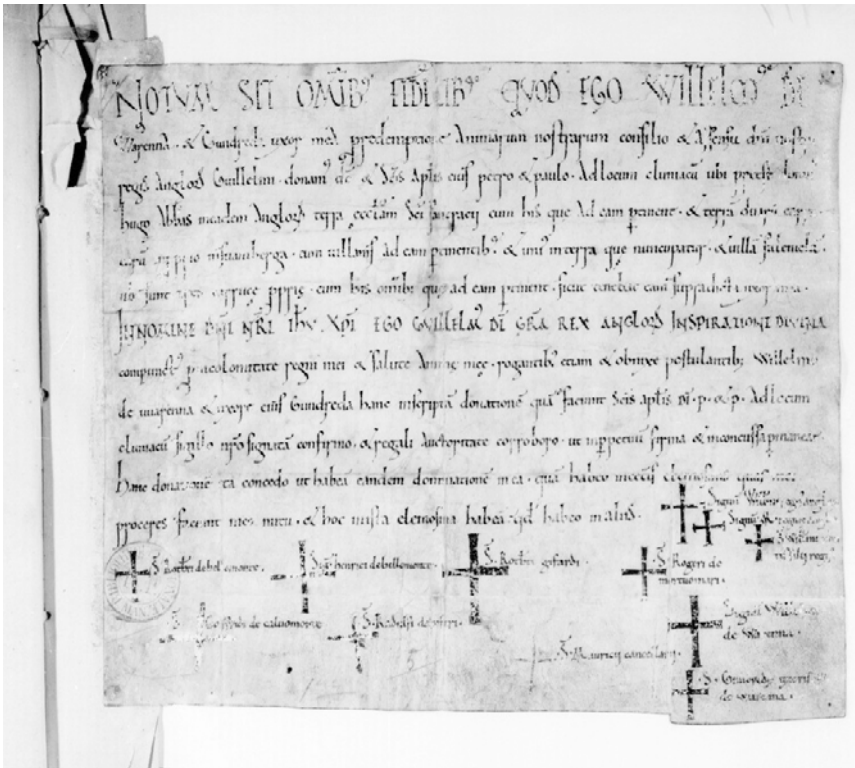 NOTVM SIT OMIB' FIDELIB' QVOD EGO WILLELM' DE
Warenna · & Gundreda uxor mea p redemptione Animarum nostrarum consilio & assensu dni nostri
regis Angloʀ Guillelmi · donam' dō & Scis Aptis eius petro & paulo · Ad locum cluniacū ubi preest donn'
hugo Abbas in eadem Angloʀ terra eccłam Sci pancracii cum his que Ad eam ptinent · & terrā duarū
cum uillanis ad eam ptinentib' & uno in terra quę nuncupatur · & uilla falemela
ubi sunt ppie · cum his omīb' quę ad eam ptinent · sicut tenebat eam supradicta uxor mea ·
IN NOMINE DNI NRI IHV XPI EGO GVILLELM' DI GRA REX ANGLOʀ INSPIRATIONE DIVINA
compunct' p incolomitate regni mei & salute Animę meę · rogantib' etiam & obnixe postulantib' Willelmo
de uuarenna & uxore eius Gundreda hanc inscriptā donationē quā faciunt Scis aptis Di · p · & p · Ad locum
cluniacū sigillo nro signatā confirmo · & regali Auctoritate corroboro · ut inppetuū firma & inconcussa pmaneat
Hanc donationē ita concedo ut habeā eandem dominationē in ea · quā habeo in cęteris elemosinis quas mei
proceres faciunt meo nutu · & hoc in ista elemosina habeā qd habeo in aliis ·
Signū Willmi regis anglorū
Signū M reginę
S Willmi
filii regis
S Rotberti de bellomonte ·
Signū henrici de bellomonte ·
S Rotberti gifardi ·
S Rogeri de
mortuomari ·
S Goffridi de caluomonte
S · Radulfi
S · Mauricii cancellarii
Signū Willelmi
de Warenna ·
S · Gundredę uxoris
de Warenna ·